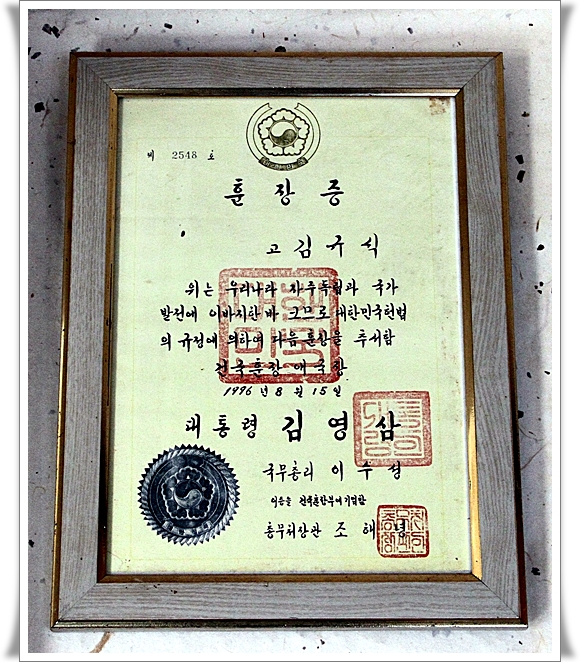 제 2548 호
훈장증
고 김규식
위는 우리나라 자주독립과 국가
발전에 이바지한바 크므로 대한민국헌법
의 규정에 의하여 다음 훈장을 추서함
건국훈장 애국장
1996년 8월 15일
대통령 김영삼
국무총리 이수성
이증을 건국훈장부에 기입함
총무처장관 조해녕